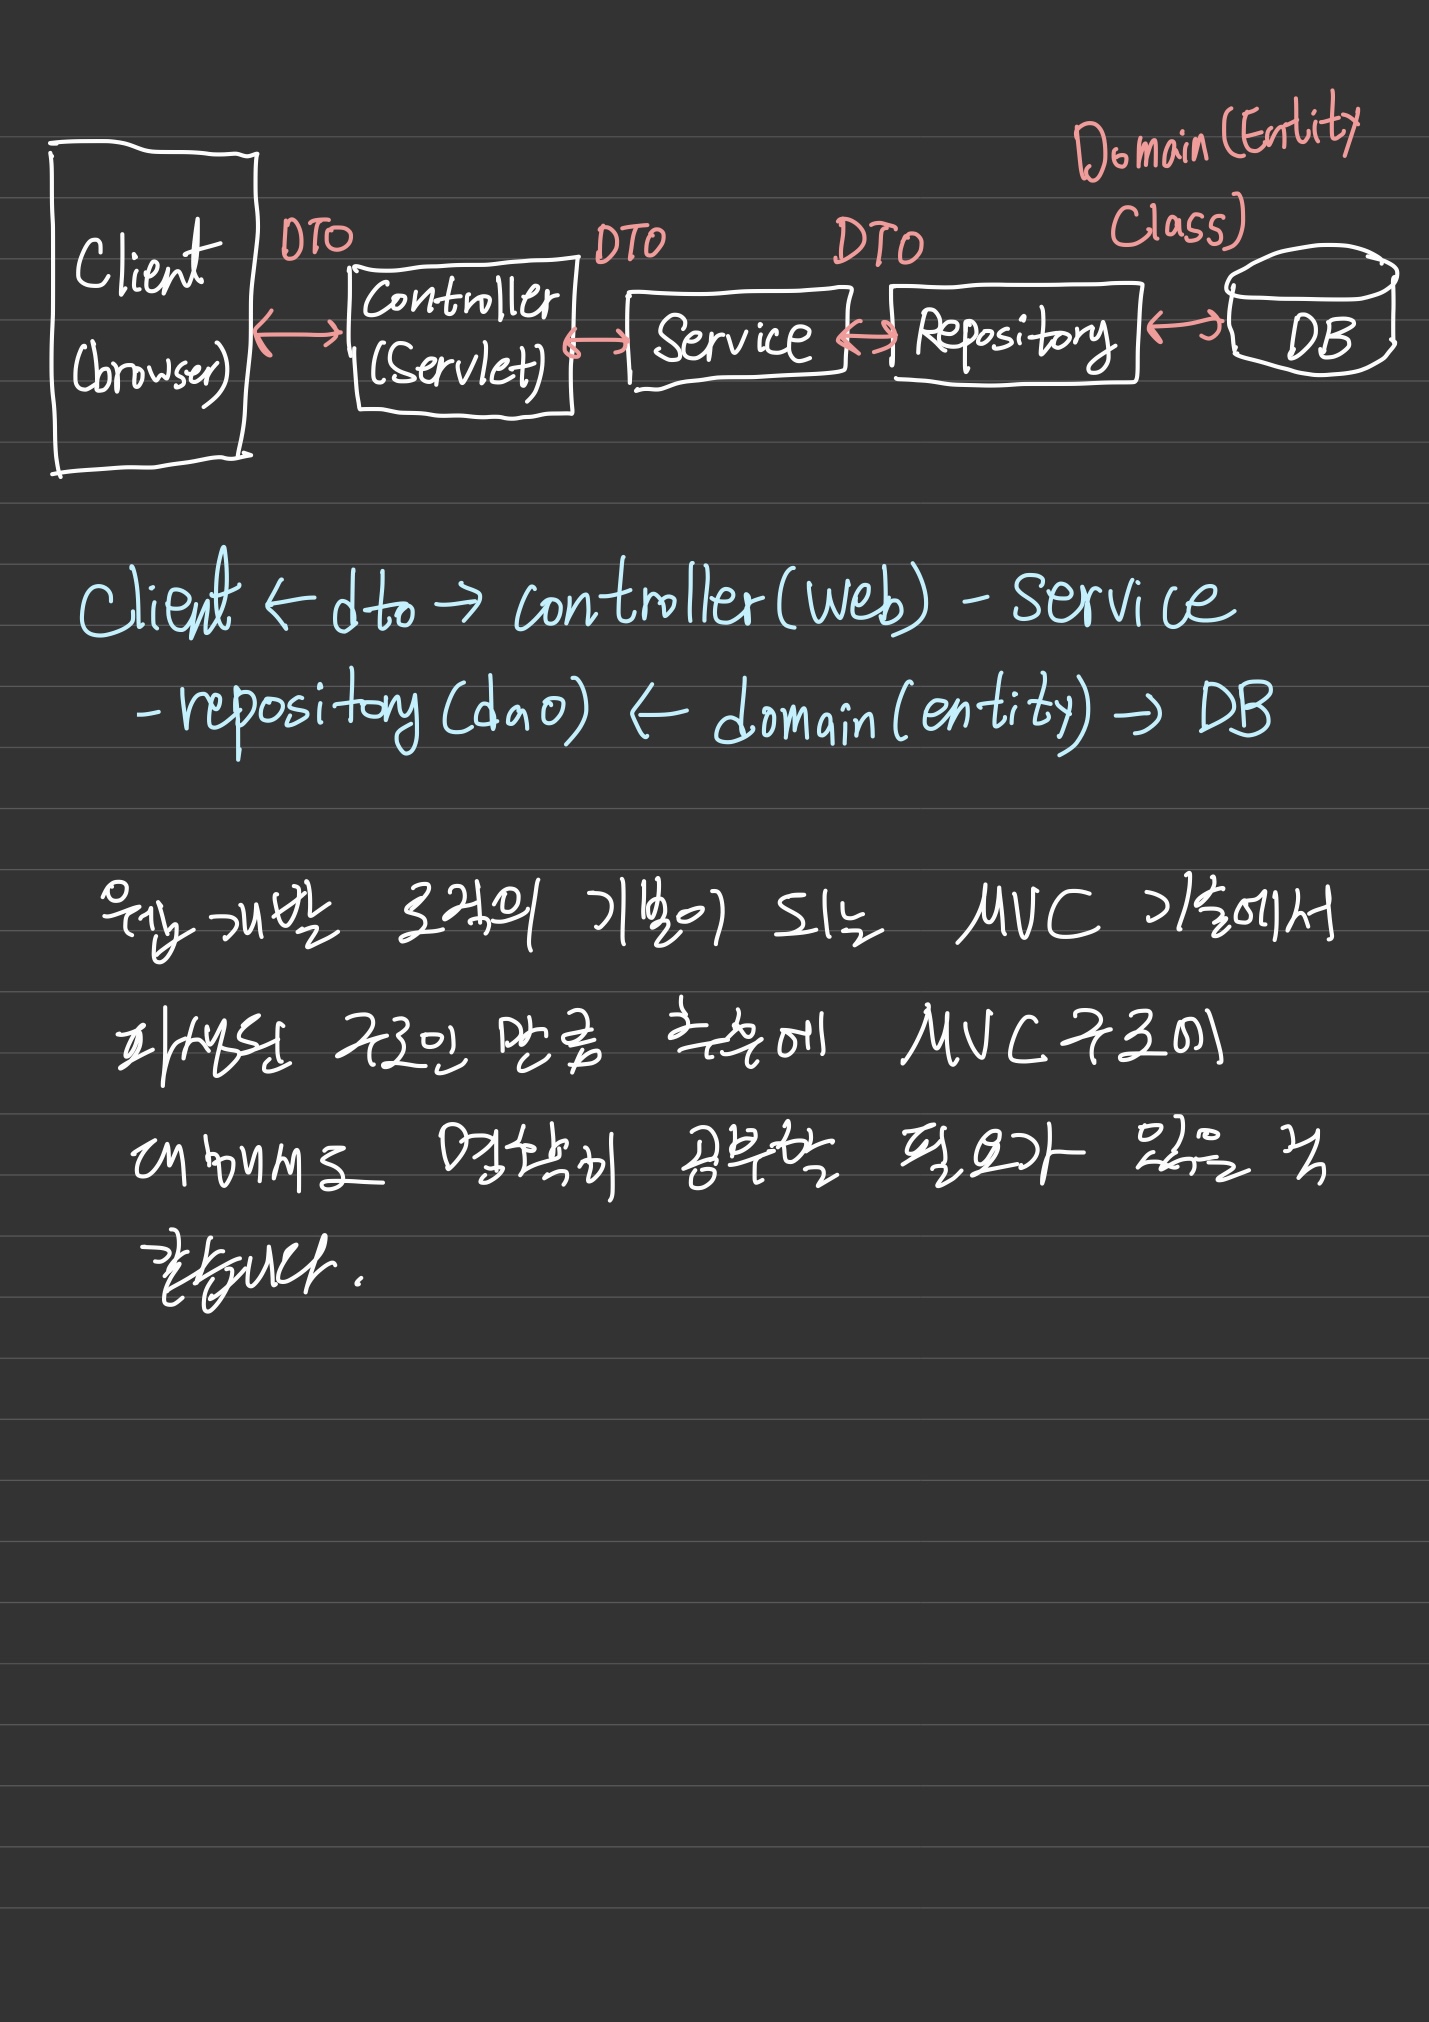 Domain (Entity
Class)
DTO
DTO
DTO
Client
(browser)
Controller
(Servlet)
Service
Repository
DB
Client ← dto → controller(web) - service
- repository(dao) ← domain(entity) → DB
웹개발 로직의 기본이 되는 MVC 기술에서
파생된 구조인 만큼 추후에 MVC구조에
대해서도 명확히 공부할 필요가 있을 것
같습니다.